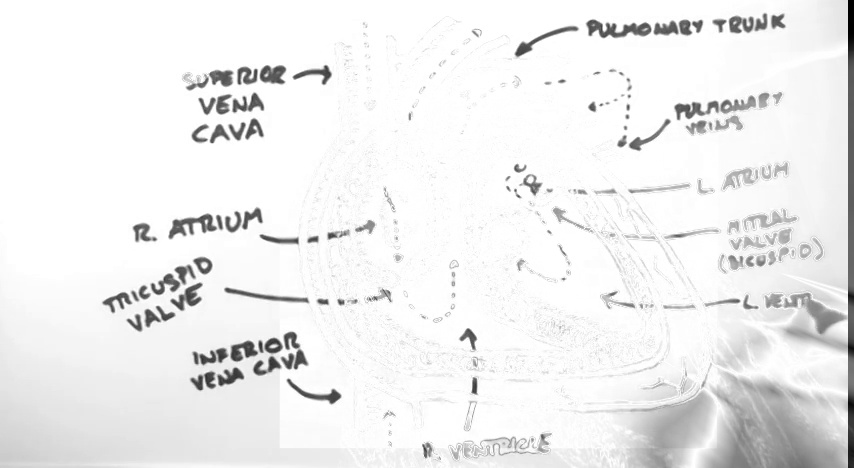 PULMONARY TRUNK
SUPERIOR
VENA
CAVA
PULMONARY
VEINS
L. ATRIUM
R. ATRIUM
MITRAL
VALVE
(BICUSPID)
TRICUSPID
VALVE
L. VENTR
INFERIOR
VENA CAVA
R. VENTRICLE